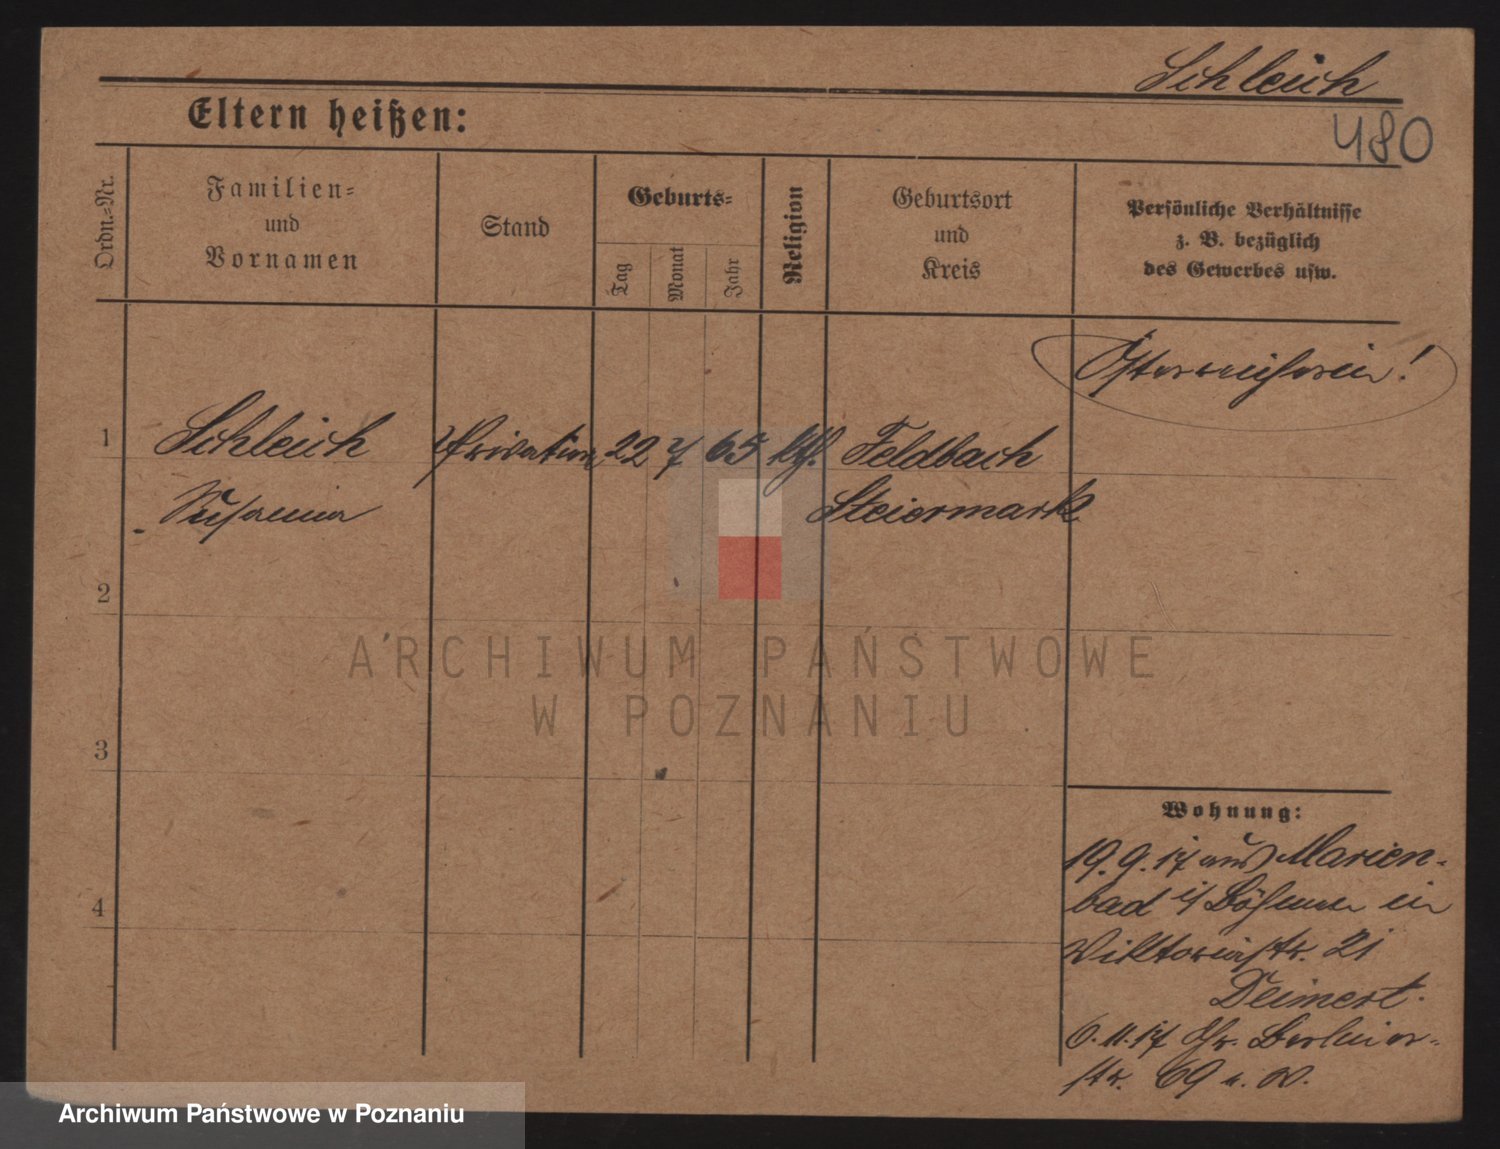 Schleich
Eltern heißen:
480
Ordn.=Nr.
Familien=
und
Vornamen
Stand
Geburts=
Tag
Monat
Jahr
Religion
Geburtsort
und
Kreis
Persönliche Verhältnisse
z. B. bezüglich
des Gewerbes usw.
Österreicherin!
1 Schleich Privatiere 22 7 65 kth. Feldbach
Susanna Steiermark
2
3
4
Wohnung:
19.9.17 aus Marien-
bad i/ Böhmen in
Viktoriastr. 21
Deinert.
6.11.17 Chr. Berliner-
str. 69 u. O.
ARCHIWUM PAŃSTWOWE
W POZNANIU
Archiwum Państwowe w Poznaniu